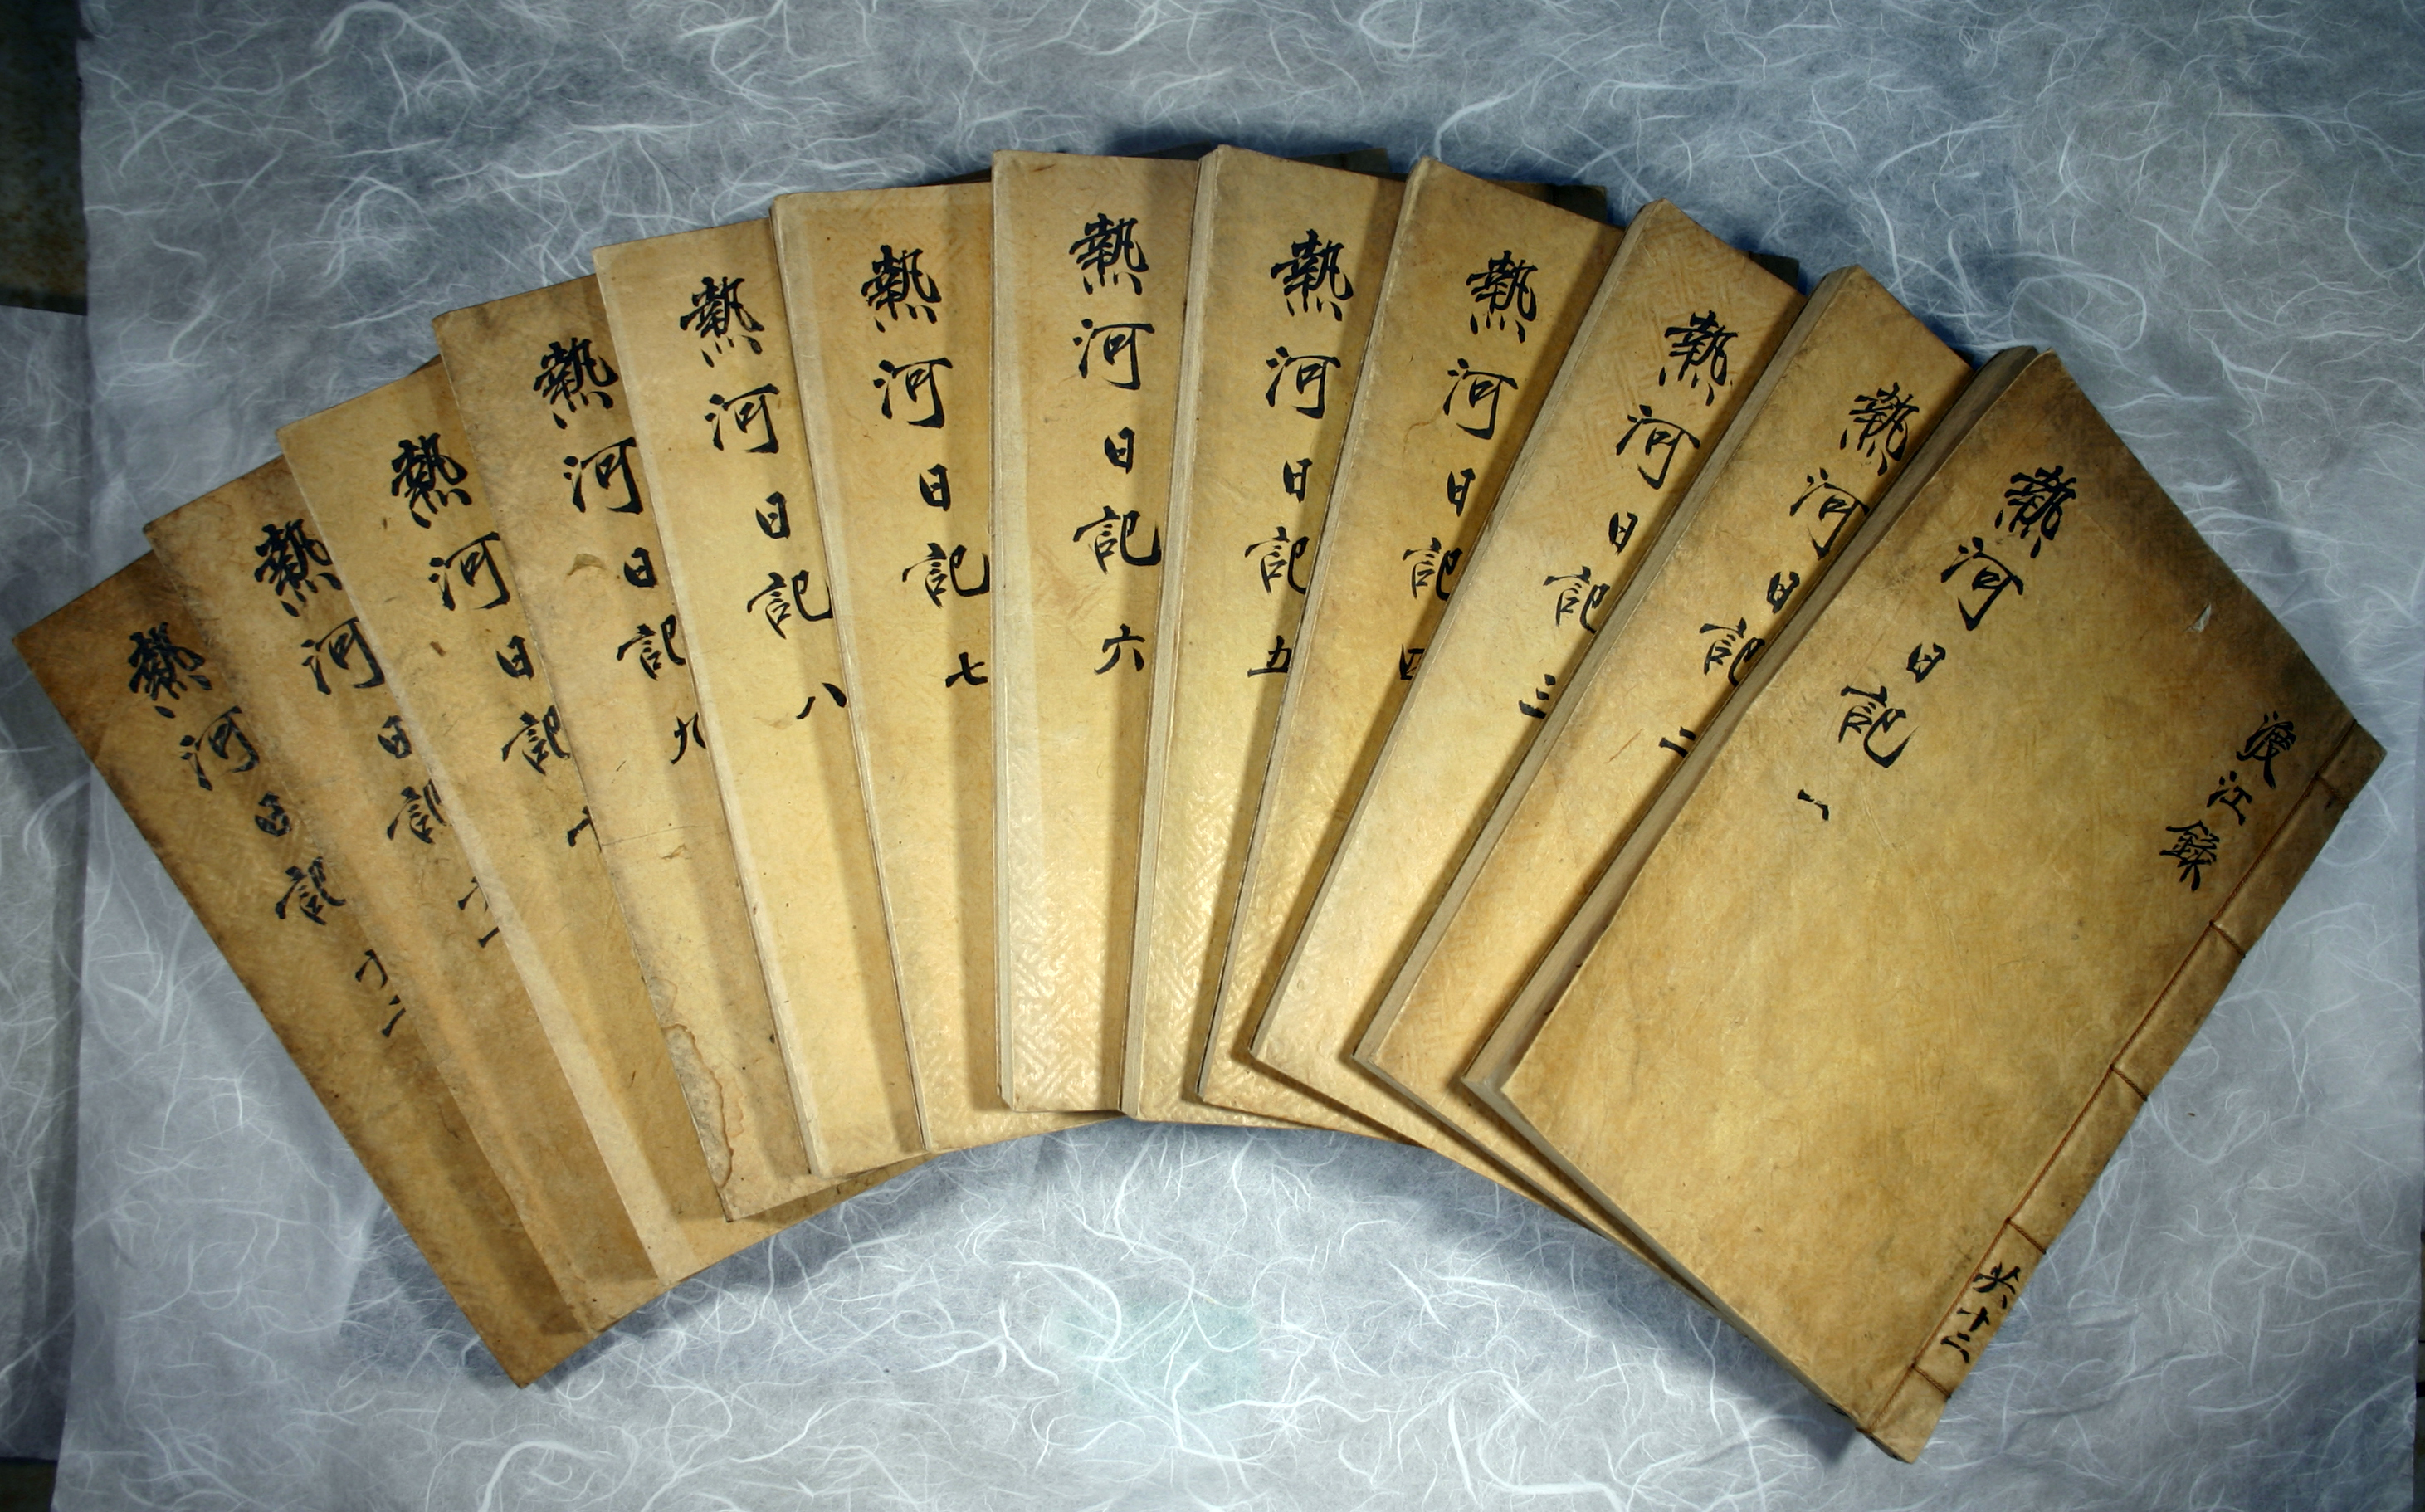 熱河日記 一
渡江錄
共十二
熱河日記 二
熱河日記 三
熱河日記 四
熱河日記 五
熱河日記 六
熱河日記 七
熱河日記 八
熱河日記 九
熱河日記 十
熱河日記 十一
熱河日記 十二